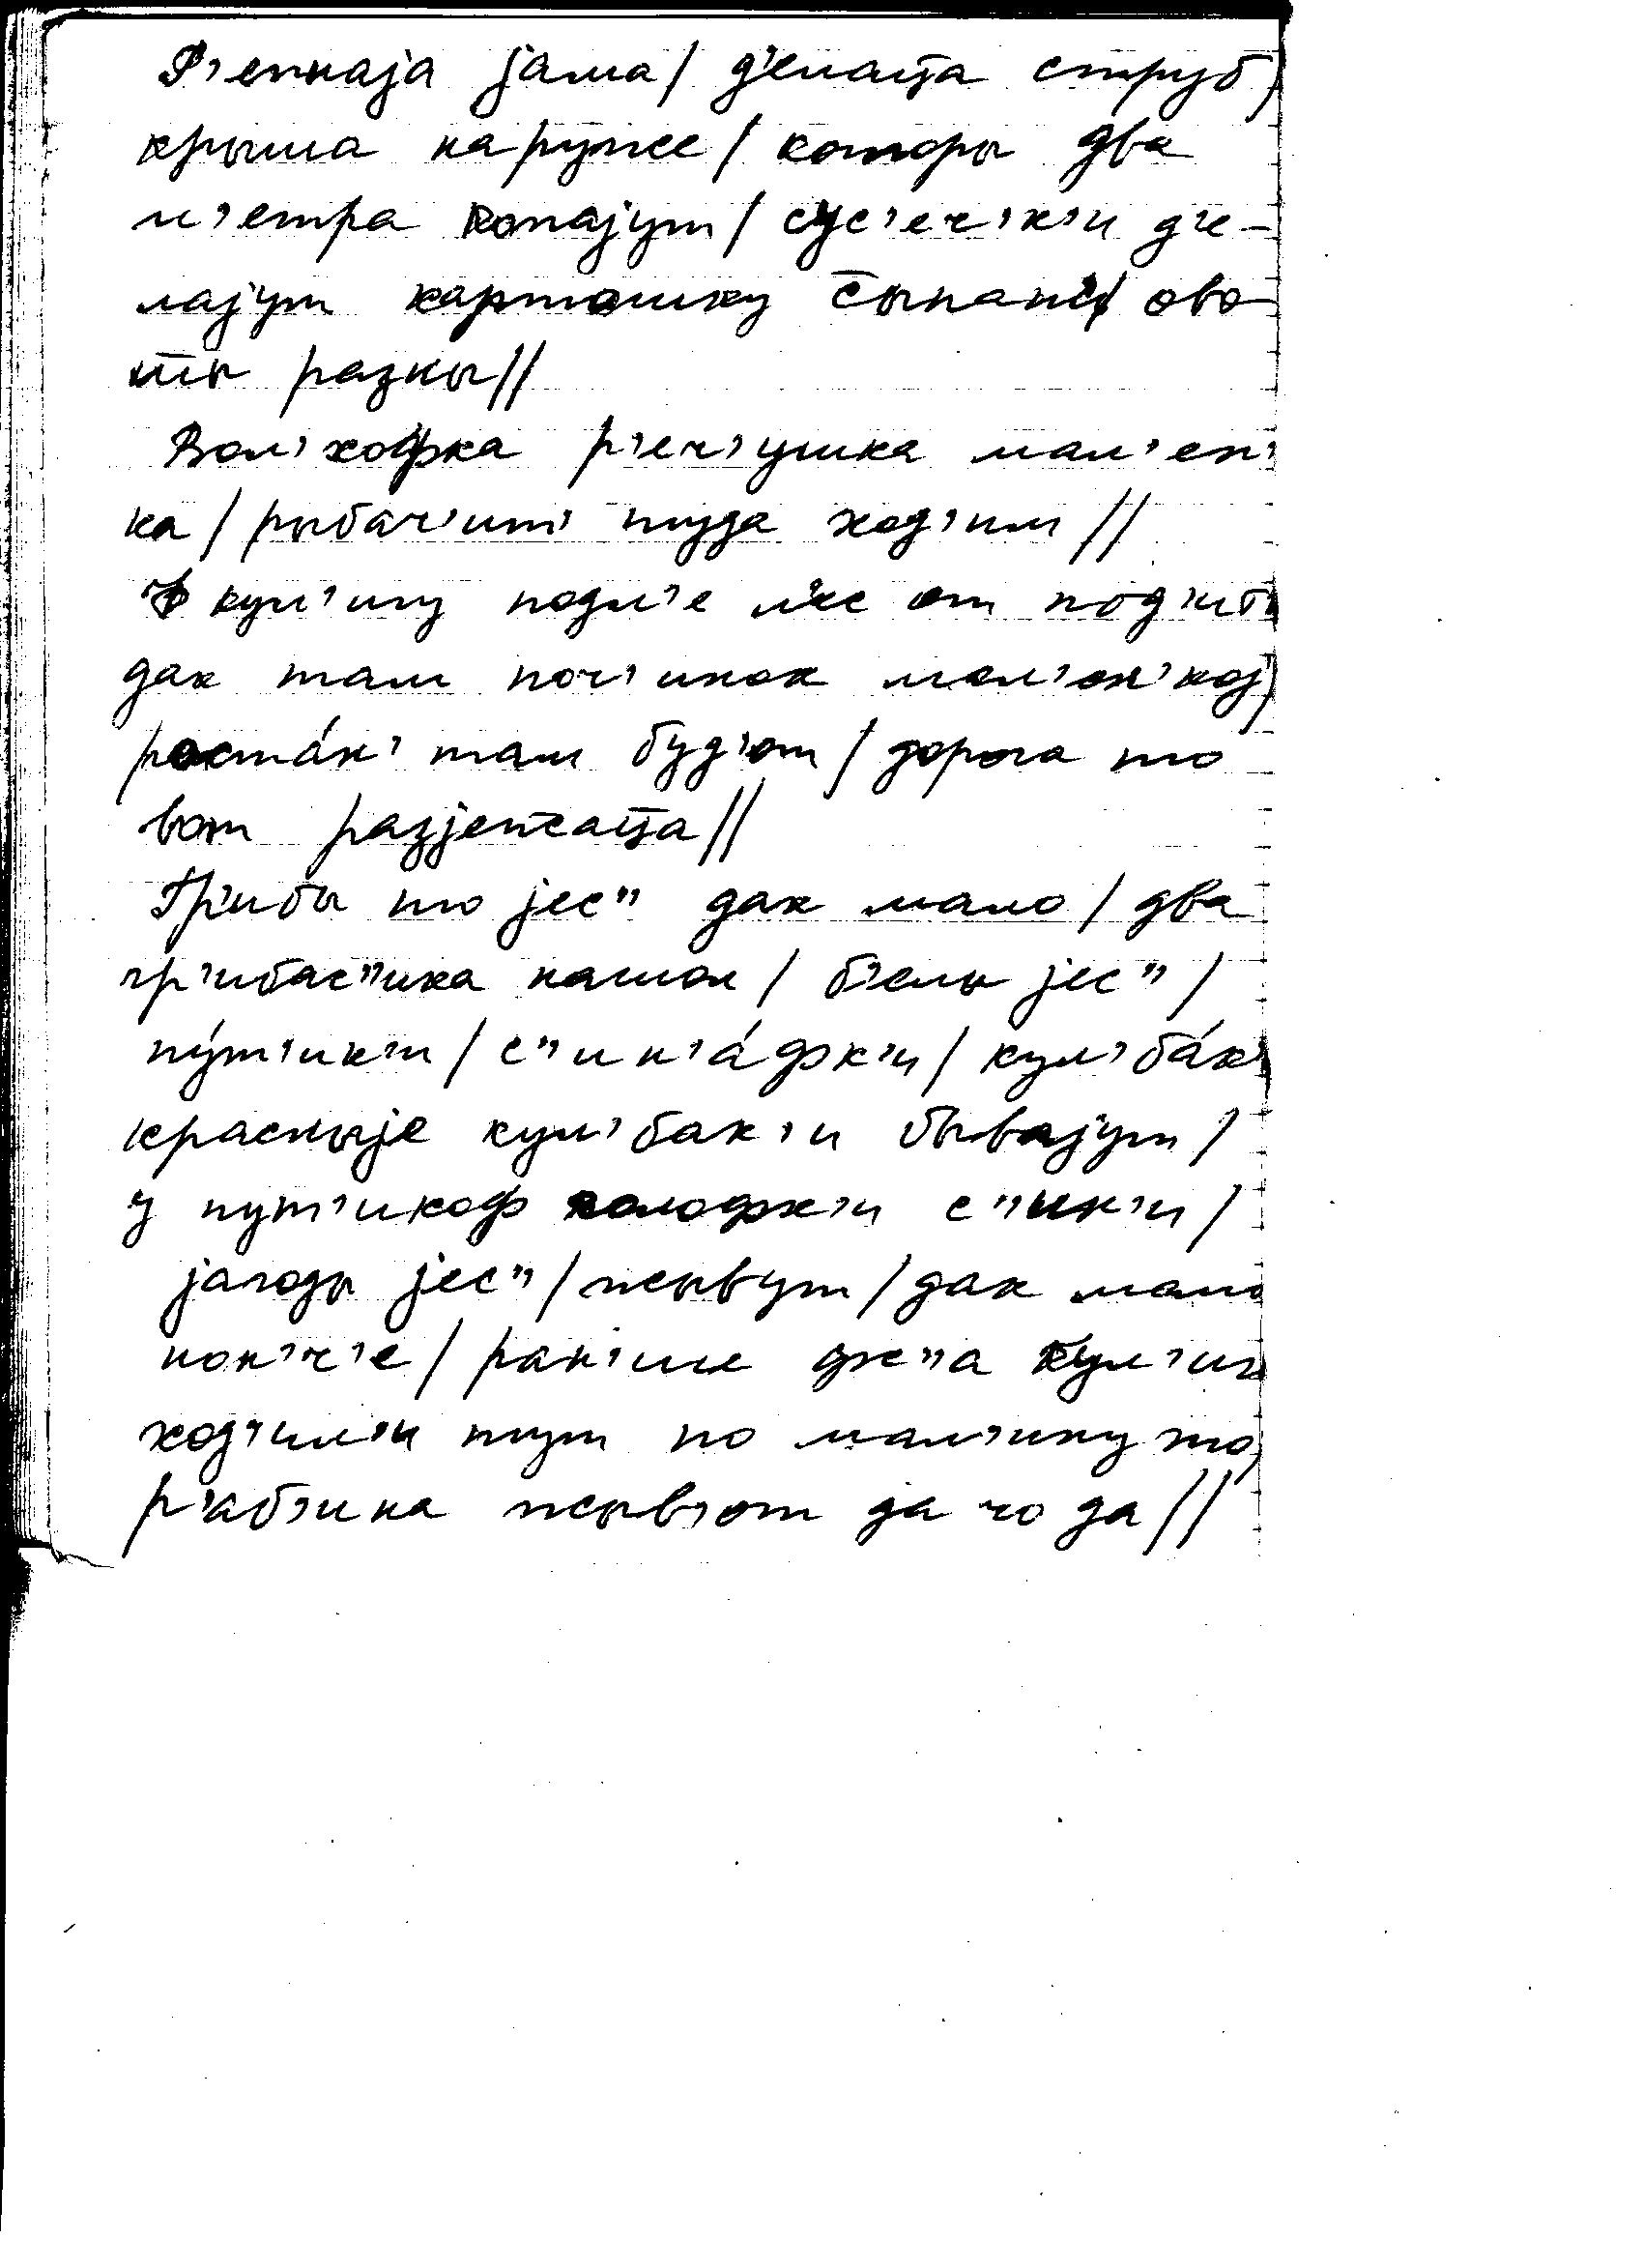 Р'епнаја јама / д'елаца струб /
крыша наружe / которы два
м'етра копајут / сус'еч'к'и д'е-
лајут картошку сыпат' / ово
шшы разны //
Вол'хофка р'еч'ушка мал'ен'
ка / рыбач'ит' туда ход'им //
Ф кул'игу подл'е л'ес от под'ит'
дак там поч'инок мал'ен'кој /
роста́н' там буд'от / дорога то
вот разјежжаца //
Гр'ибы то јес" дак мало / два
гр'ибас"ика нашол / б'елы јес" /
пу́т'ик'и / с"ин'а́фк'и / кул'ба́к'и
красныје кул'бак'и бывајут /
у пут'икоф головк'и с"ин'и /
јагоды јес" / жывут / дак мало
нон'ч'е / ран'ше фс"а кул'ига
ход'ил'и тут по мал'ину то /
р'аб'ина жыв'от да чо да //